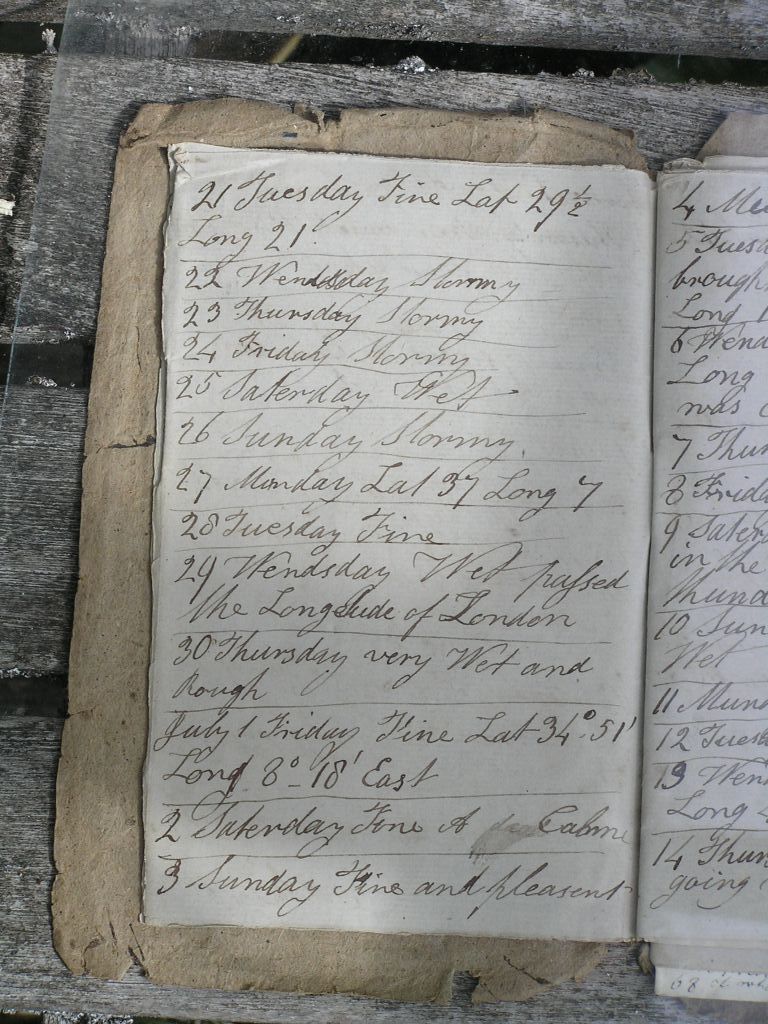 21 Tuesday Fine Lat 29 ½
Long 21
22 Wendsday Stormy
23 Thursday Stormy
24 Friday Stormy
25 Saterday Wet
26 Sunday Stormy
27 Munday Lat 37 Long 7
28 Tuesday Fine
29 Wendsday Wet passed
the Longetude of London
30 Thursday very Wet and
Rough
July 1 Friday Fine Lat 34° 51'
Long 8° - 18' East
2 Saterday Fine A Calme
3 Sunday Fine and pleasent
4
5 Tuesd
brough
Long 1
6 Wend
Long
was
7 Thur
8 Frida
9 Saterd
in the
thund
10 Sun
Wet
11 Mund
12 Tuesd
13 Wen
Long
14 Thur
going
68 of